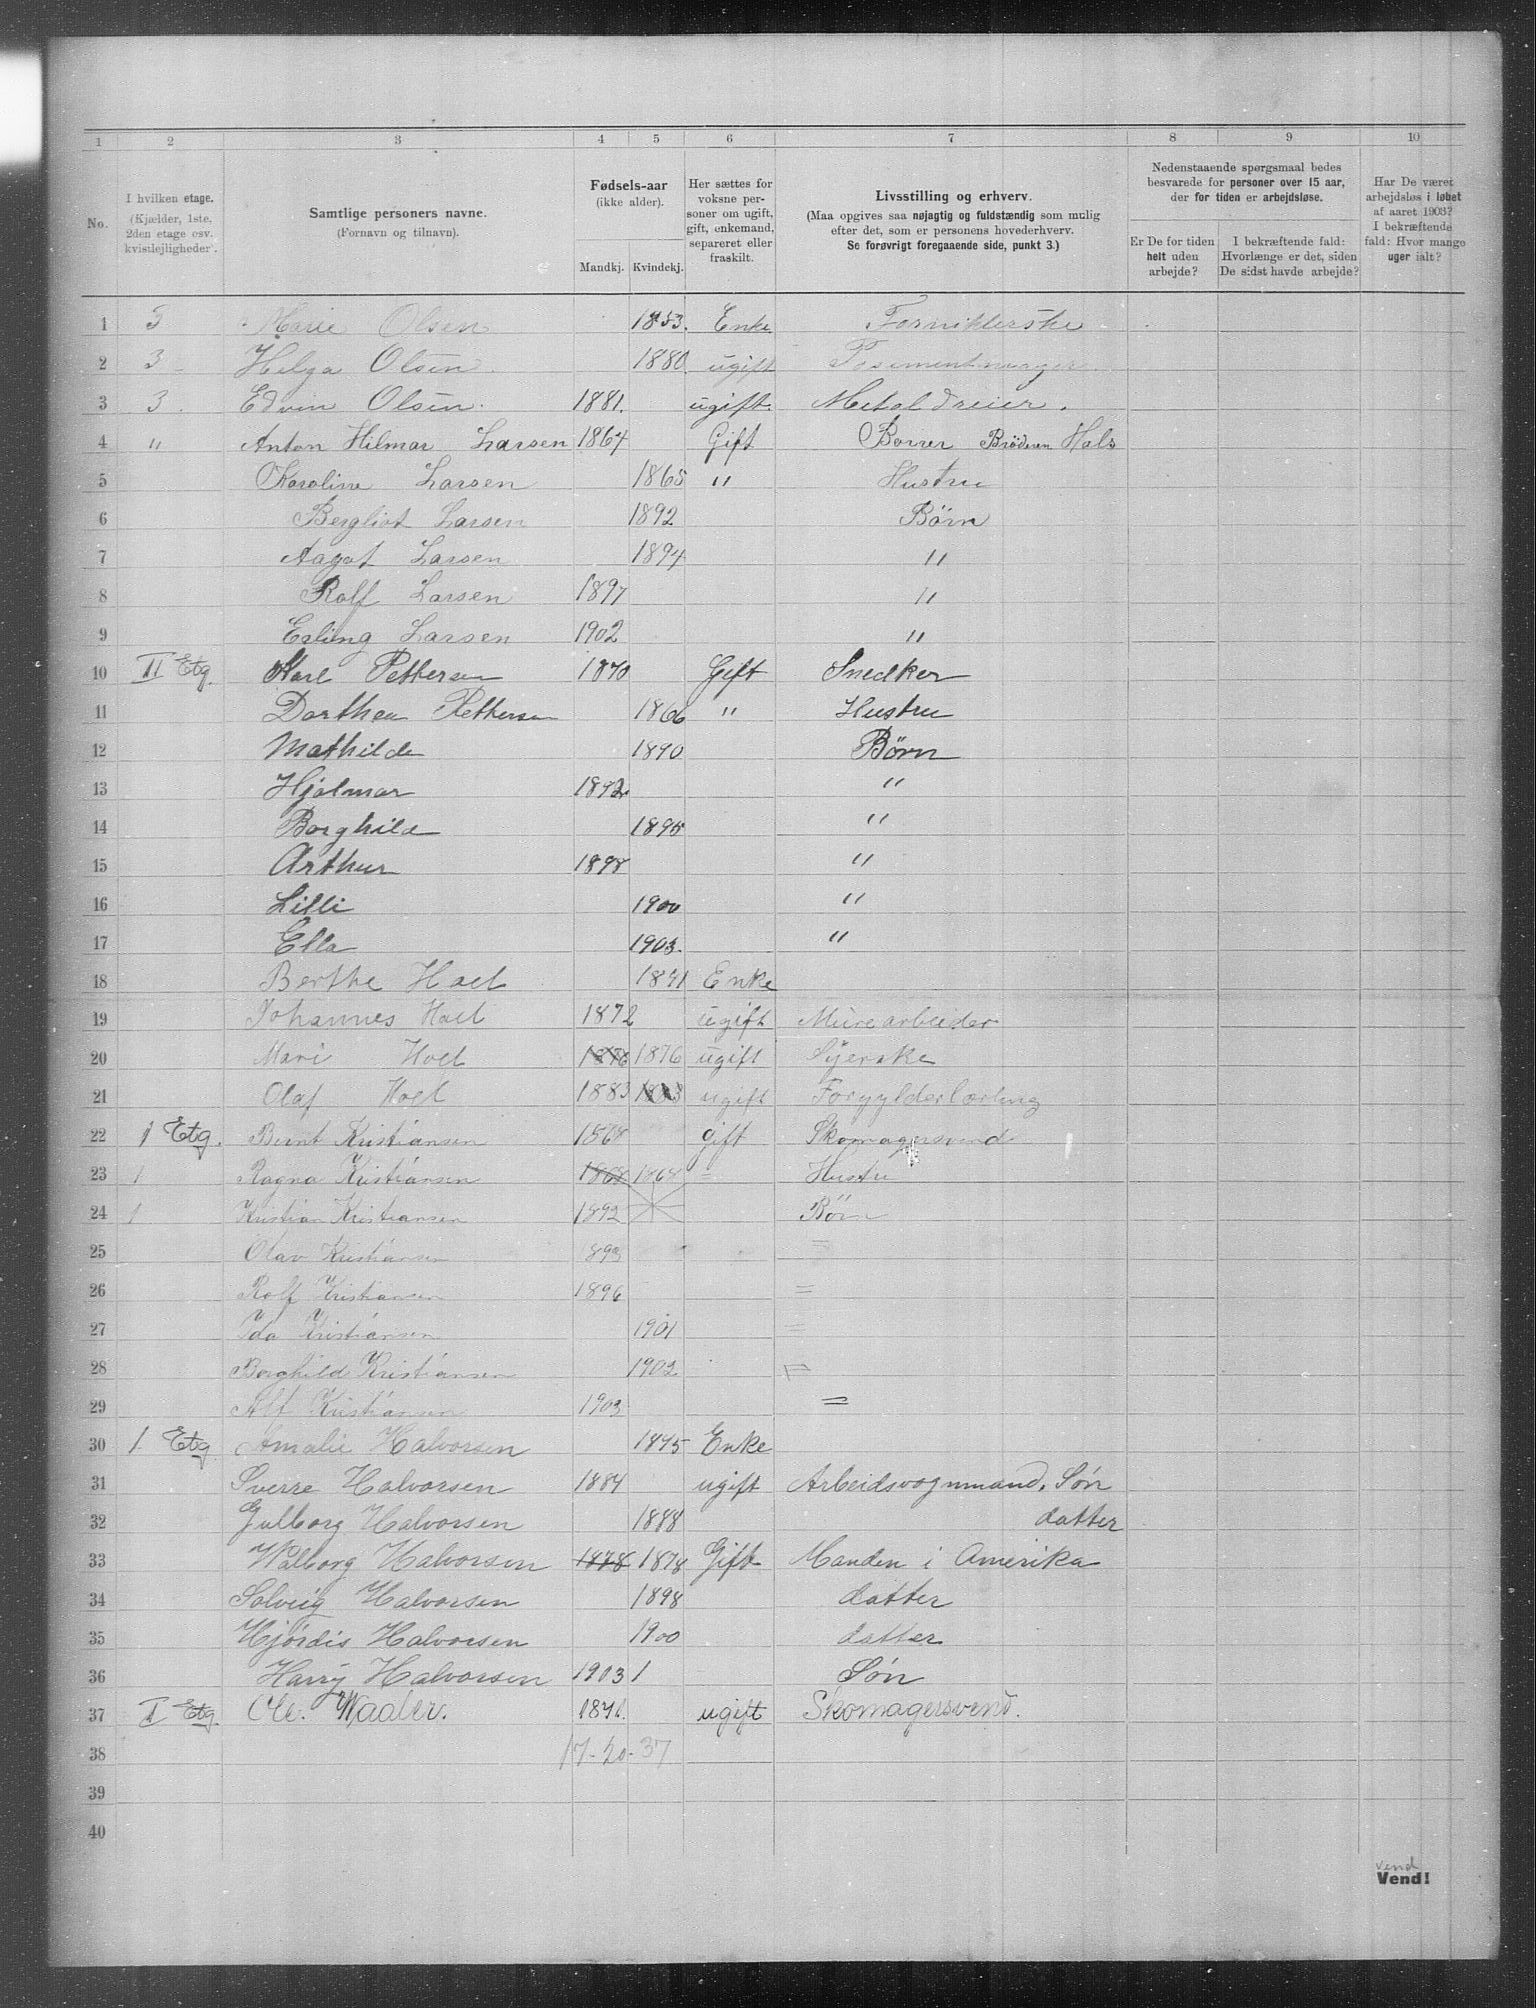 1 2 3 4 5 6 7 8 9 10
No.
I hvilken etage.
(Kjælder, 1ste,
2den etage osv.
kvistlejligheder).
Samtlige personers navne.
(Fornavn og tilnavn).
Fødsels-aar
(ikke alder).
Mandkj. Kvindekj.
Her sættes for
voksne per-
soner om ugift,
gift, enkemand,
separeret eller
fraskilt.
Livsstilling og erhverv.
(Maa opgives saa nøjagtig og fuldstændig som mulig
efter det, som er personens hovederhverv.
Se forøvrigt foregaaende side, punkt 3.)
Nedenstaaende spørgsmaal bedes
besvarede for personer over 15 aar,
der for tiden er arbejdsløse.
Er De for tiden
helt uden
arbejde?
I bekræftende fald:
Hvorlænge er det, siden
De sidst havde arbejde?
Har De været
arbejdsløs i løbet
af aaret 1903?
I bekræftende
fald: Hvor mange
uger ialt?
1 3 Marie Olsen 1853. Enke Forniklerske
2 3 Helga Olsen 1880. ugift
3 3. Edvin Olsen. 1881. ugift. Metaldreier.
4 " Anton Hilmar Larsen 1864 Gift Borrer Brödrem Hals
5 Karoline Larsen 1865 " Hustru
6 Bergliot Larsen 1892 Börn
7 Aagot Larsen 1894 "
8 Rolf Larsen 1897 "
9 Erling Larsen 1902 "
10 II Etg. Karl Pettersen 1870 Gift Snedker
11 Dorthea Pettersen 1866 " Hustru
12 Mathilde 1890 Børn
13 Hjalmar 1892 "
14 Borghild 1895 "
15 Arthur 1898 "
16 Lilli 1900 "
17 Ella 1903. "
18 Berthe Hoel 1841 Enke
19 Johannes Hoel 1872 ugift Murearbeider
20 Mari Hoel 1876 1876 ugift Syerske
21 Olaf Hoel 1883 1883 ugift Forgylderlærling
22 1 Etg. Bernt Kristiansen 1868 gift Skomagersvend
23 1 Ragna Kristiansen 1868 1868 = Hustru
24 1 Kristian Kristiansen 1892 Börn
25 Olav Kristiansen 1893 =
26 Rolf Kristiansen 1896 =
27 Ida Kristiansen 1901 =
28 Borghild Kristiansen 1902 =
29 Alf Kristiansen 1903 =
30 1. Etg Amalie Halvorsen 1845 Enke
31 Sverre Halvorsen 1884 ugift Arbeidsvognmand. Søn
32 Gulborg Halvorsen 1888 datter
33 Walborg Halvorsen 1878 1878 Gift Manden i Amerika
34 Solveig Halvorsen 1898 datter
35 Hjørdis Halvorsen 1900 datter
36 Harry Halvorsen 1903 1 Søn
37 I Etg. Ole. Waaler. 1876. ugift Skomagersvend.
38 17-20-37
39
40
vend
Vend!